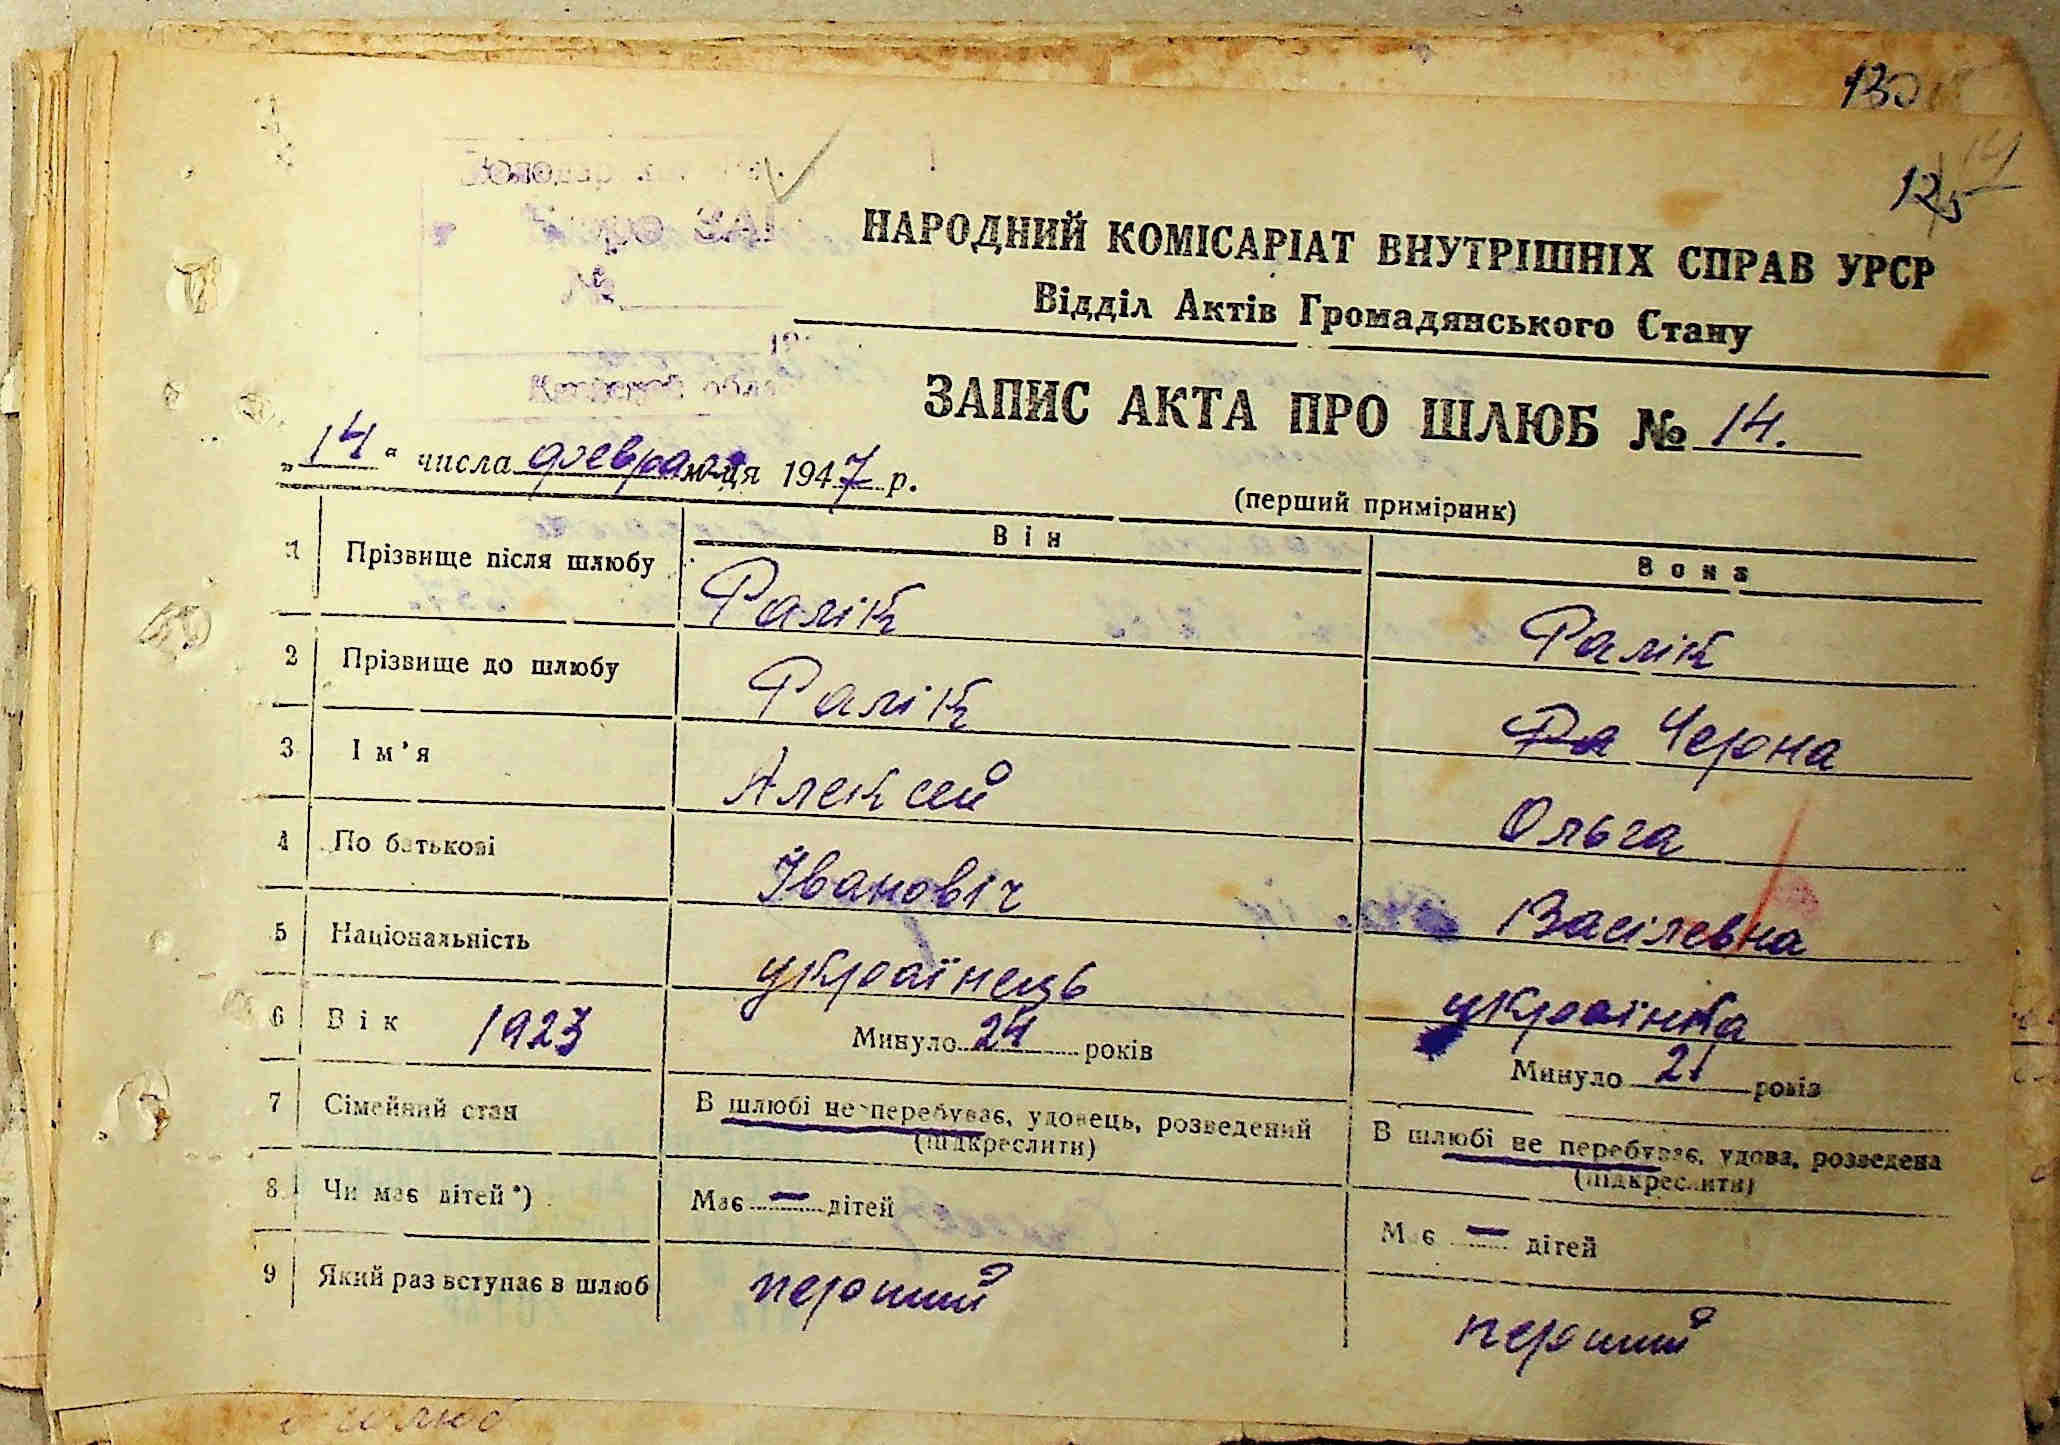 130
14
125
НАРОДНИЙ КОМІСАРІАТ ВНУТРІШНІХ СПРАВ УРСР
Відділ Актів Громадянського Стану
ЗАПИС АКТА ПРО ШЛЮБ № 14.
„14“ числа февраля м-ця 1947 р.
(перший примірник)
Він Вона
1 Прізвище після шлюбу Ралік Ралік
2 Прізвище до шлюбу Ралік Ра Черна
3 Ім'я Алексей Ольга
4 По батькові Івановіч Васілевна
5 Національність українець українка
6 Вік 1923 Минуло 24 років Минуло 21 років
7 Сімейний стан В шлюбі не перебуває, удовець, розведений В шлюбі не перебуває, удова, розведена
(підкреслити) (підкреслити)
8 Чи має дітей*) Має — дітей Має — дітей
9 Який раз вступає в шлюб перший перший